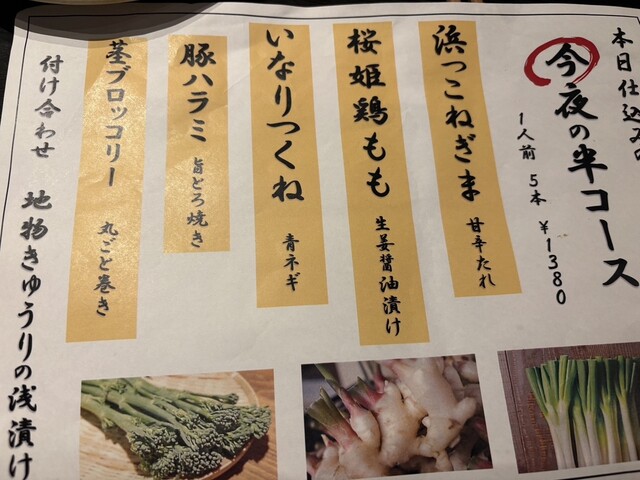 本日仕込みの
今夜の半コース
1人前 5本 ¥1380
浜っこねぎま 甘辛たれ
桜姫鶏もも 生姜醤油漬け
いなりつくね 青ネギ
豚ハラミ 旨とろ焼き
茎ブロッコリー 丸ごと巻き
付け合わせ 地物きゅうりの浅漬け